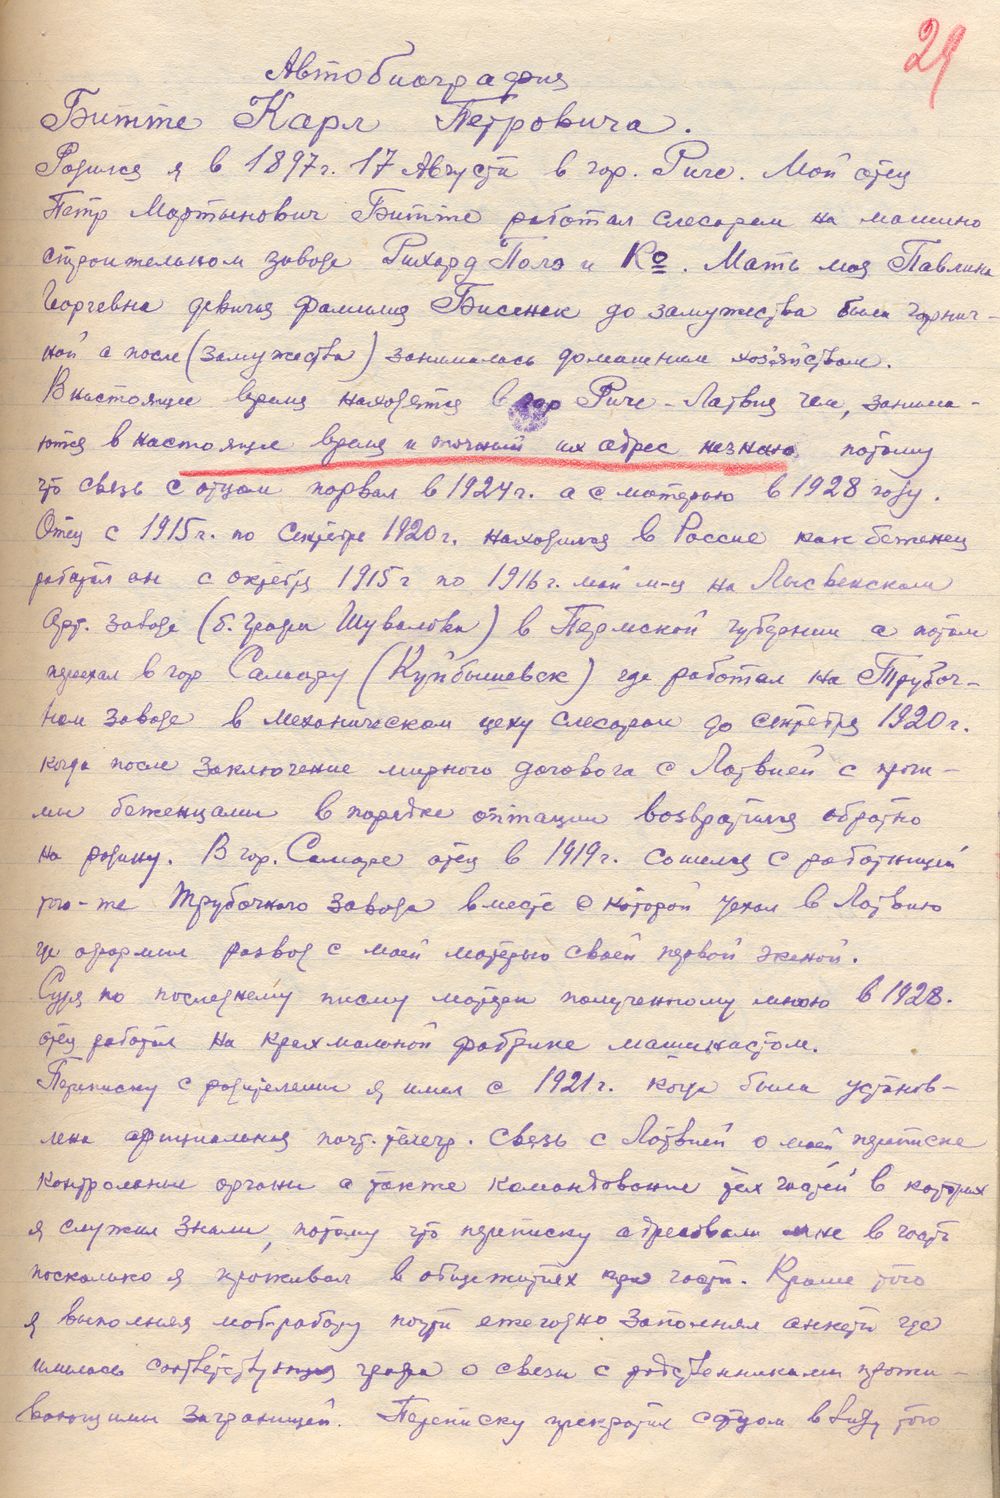 29
Автобиография
Битте Карл Петровича.
Родился я в 1897г. 17 Августа в гор. Риге. Мой отец
Петр Мартынович Битте работал слесарем на машино
строительном заводе Рихард Поле и Ко. Мать моя Павлина
Георгевна девичья фамилия Бисенек до замужества была горнич-
ной а после (замужества) занималась домашним хозяйством.
В настоящее время находятся в гор Риге - Латвия чем, занима-
ются в настоящее время и точный их адрес незнаю потому
что связь с отцом порвал в 1924г. а с матерью в 1928 году.
Отец с 1915г. по сентябре 1920г. находился в России как беженец
работал он с октября 1915г по 1916г. май м-ц на Лысвенском
Арт. заводе (б. графа Шувалова) в Пермской губернии а потом
переехал в гор Самару (Куйбышевск) где работал на Трубоч-
ном заводе в механическом цеху слесарем до сентября 1920г.
когда после заключение мирного договора с Латвией с прочи-
ми беженцами в порядке оптации возвратился обратно
на родину. В гор. Самаре отец в 1919г. сошелся с работницей
того-же Трубочного завода вместе с которой уехал в Латвию
где оформил развод с моей матерью своей первой женой.
Судя по последнему письму матери полученному мною в 1928.
отец работал на крахмальной фабрике машинистом.
Переписку с родителями я имел с 1921г. когда была установ-
лена официальная почт. телегр. связь с Латвией о моей переписке
контрольные органы а также командование тех частей в которых
я служил знали, потому что переписку адресовали мне в часть
поскольку я проживал в общежитиях при части. Кроме того
я выполняя моб-работу почти ежегодно заполнял анкеты где
имелась соответствующая графа о связи с родственниками прожи-
вающими заграницей. Переписку прекратил с отцом в виду того